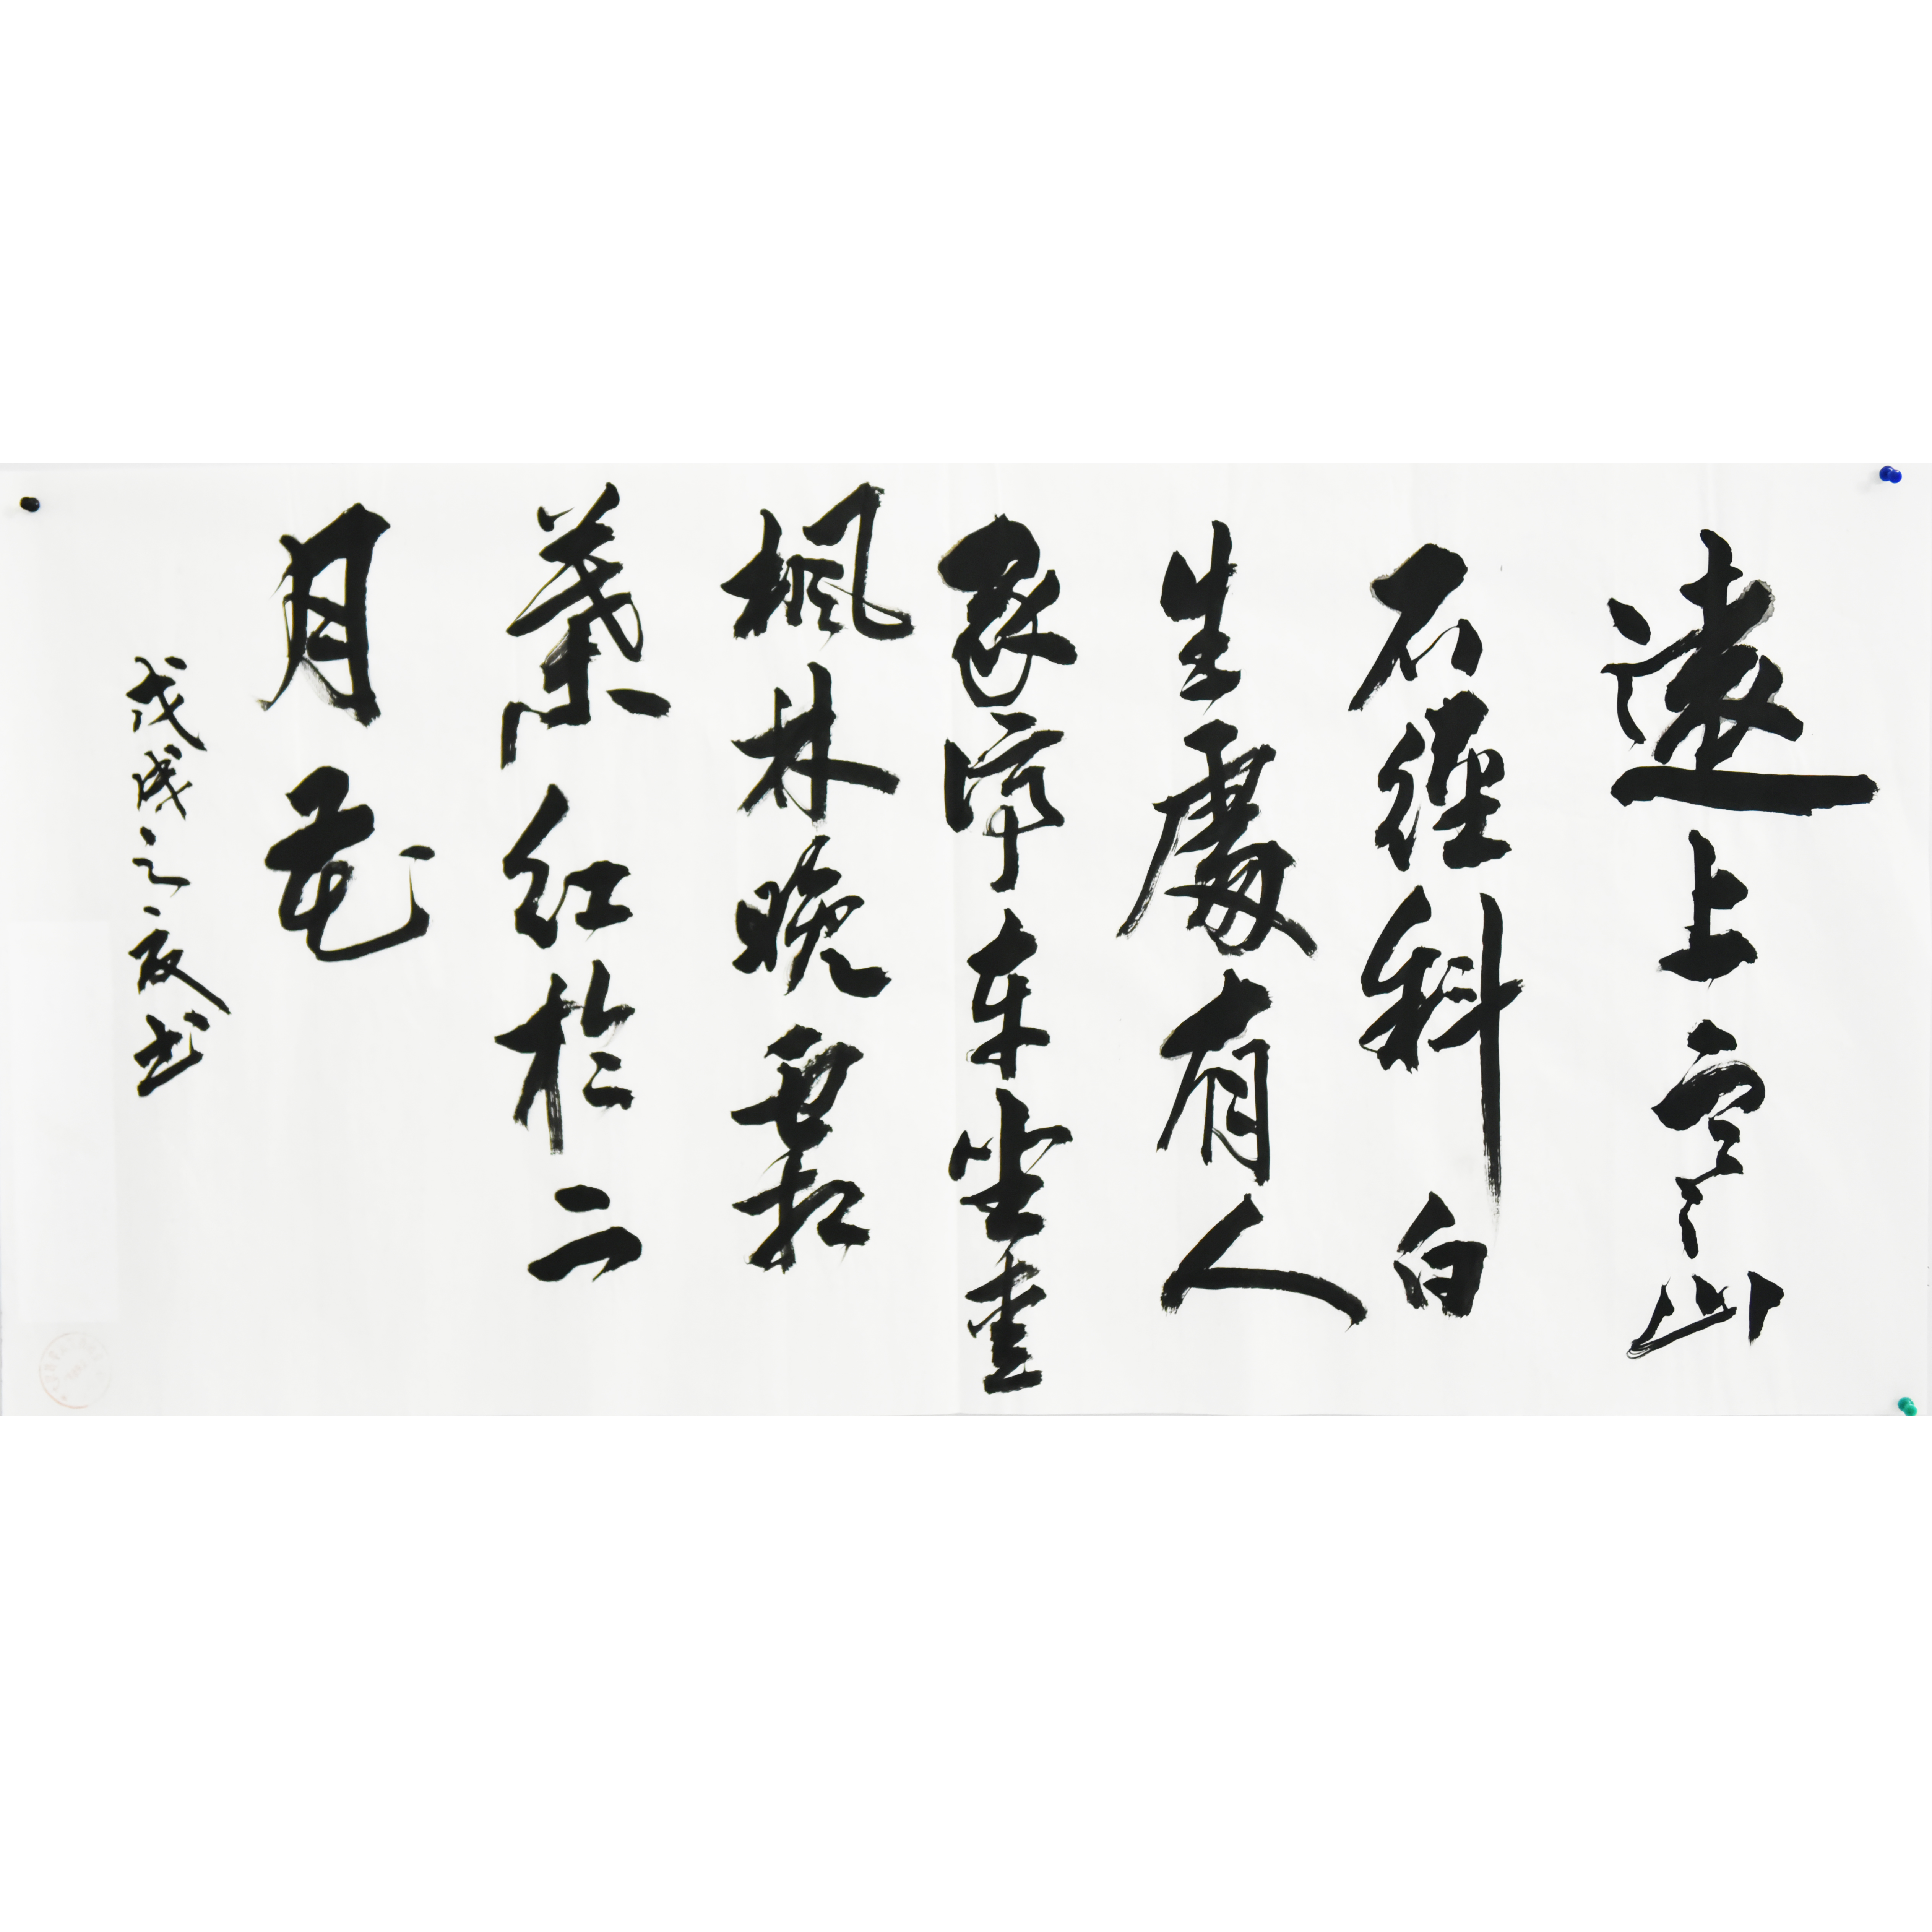 遠上寒山
石徑斜白
生處有人
家停车坐爱
枫林晚霜
葉红於二
月花
戊戌之夜书